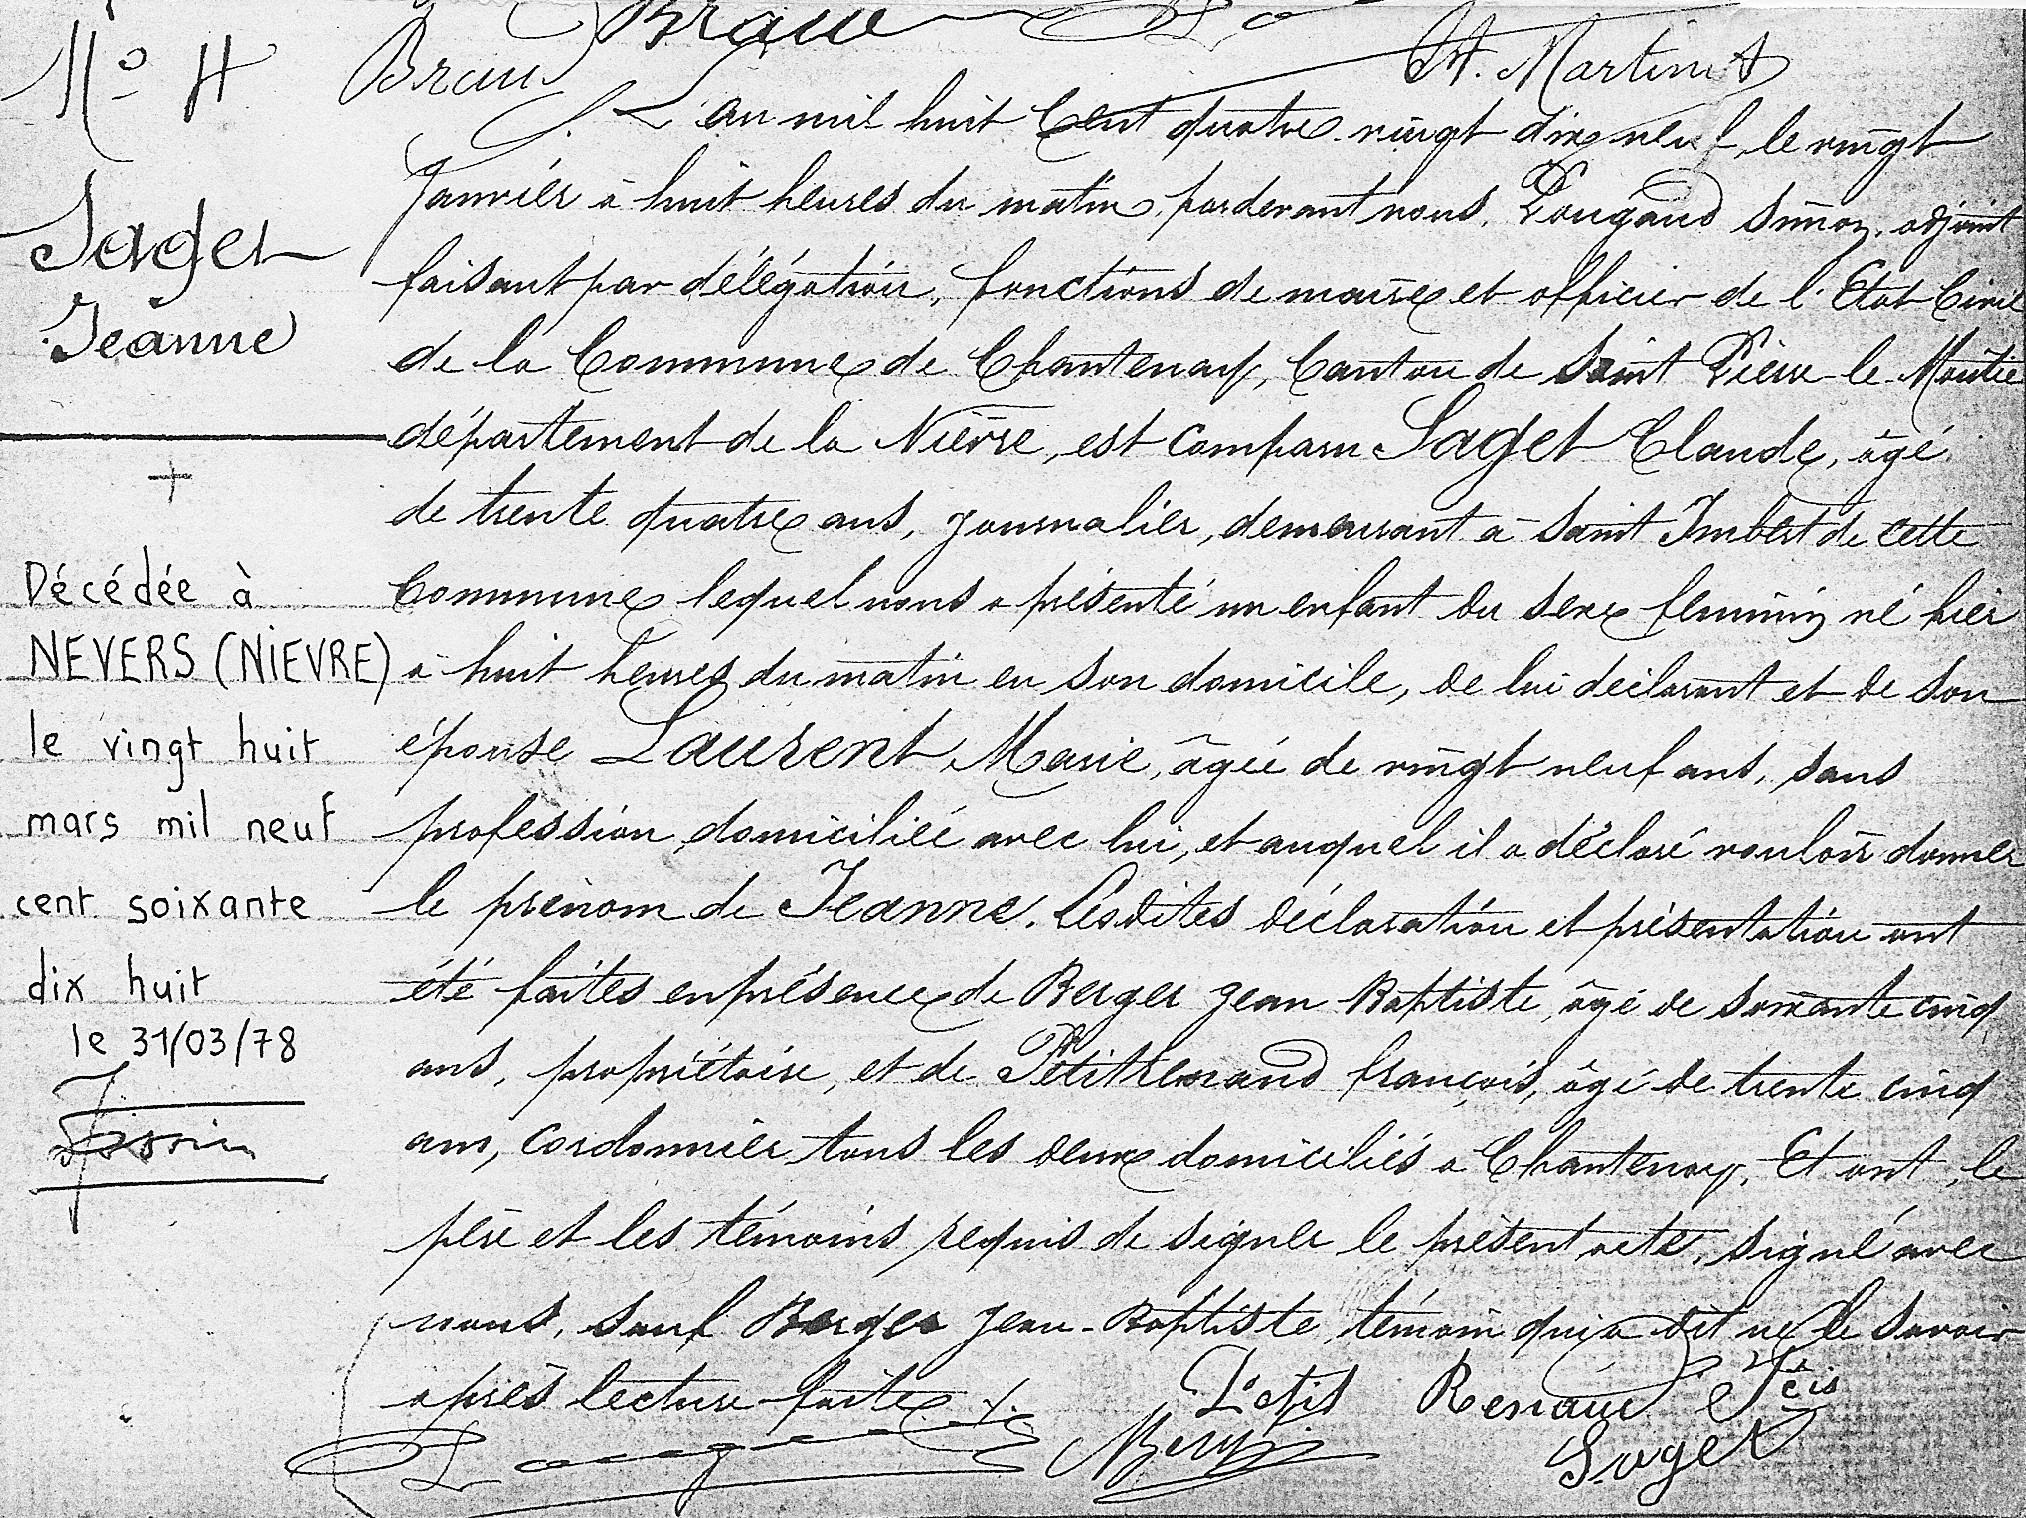 Braun
N° 4
Braun
St. Martin
L'an mil huit Cent quatre-vingt dix neuf, le vingt
Janvier à huit heures du matin, pardevant nous, Pougaud Simon, adjoint
Saget
faisant par délégation, fonctions de maire et officier de l'Etat Civil
Jeanne
de la Commune de Chantenay, Canton de Saint Pierre-le-Moutie
département de la Nièvre, est comparu Saget Claude, âgé
+
de trente quatre ans, journalier, demeurant à Saint Imbert de cette
Décédée à
Commune lequel nous a présenté un enfant du sexe féminin né hier
NEVERS (NIEVRE)
à huit heures du matin en son domicile, de lui déclarant et de son
le vingt huit
épouse Laurent Marie, âgée de vingt neuf ans, sans
mars mil neuf
profession, domiciliée avec lui, et auquel il a déclaré vouloir donner
cent soixante
le prénom de Jeanne. Lesdites déclaration et présentation ont
dix huit
été faites en présence de Berger Jean Baptiste, âgé de soixante cinq
le 31/03/78
ans, propriétaire, et de Petitrenaud françois, âgé de trente cinq
ans, cordonnier tous les deux domiciliés à Chantenay. Et ont, le
père et les témoins requis de signer le présent acte, signé avec
nous, sauf Berger Jean-Baptiste, témoin qui a dit ne le savoir
après lecture faite
Renaud
Saget